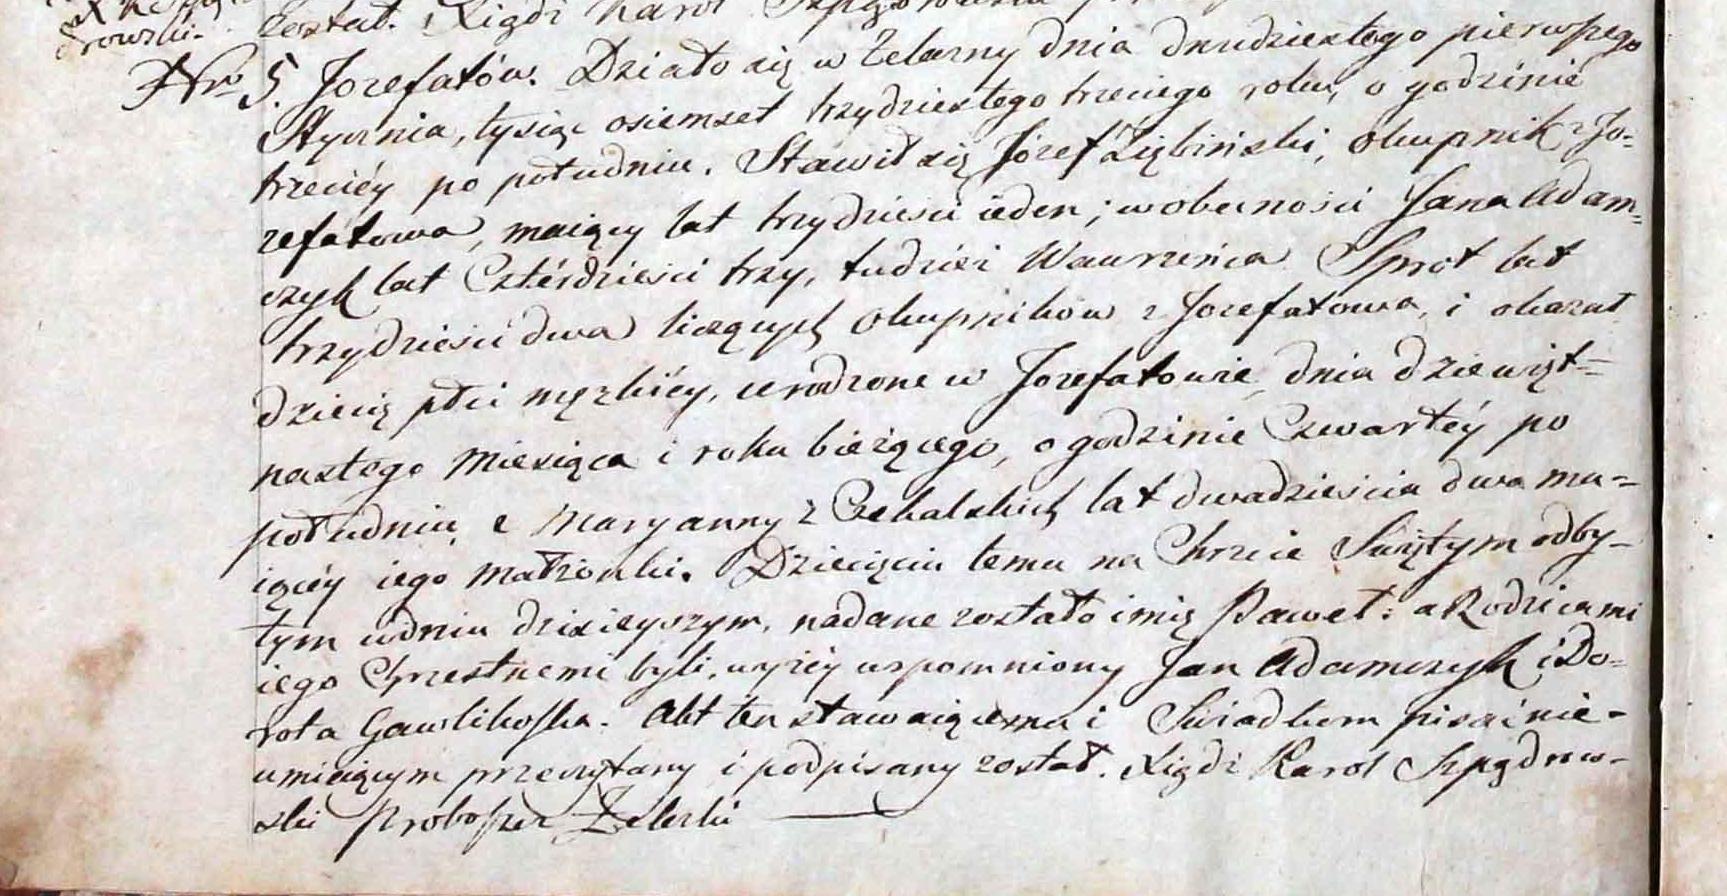 rowski.
został. Xiądz Karol
Nro 5. Jozefatów. Działo się w Zelazny dnia dwudziestego pierwszego
Stycznia, tysiąc osiemset trzydziestego trzeciego roku, o godzinie
trzeciéy po południu. Stawił się Józef Ziębiński, okupnik z Jo=
zefatowa, maiący lat trzydzieści ieden; w obecności Jana Adam=
czyk lat Cztérdzieści trzy, tudzież Wawrzeńca Sprot lat
trzydzieści dwa liczących okupników z Jozefatowa, i okazał
dziecię płci męzkiéy, urodzone w Jozefatowie dnia dziewięt=
nastego miesiąca i roku bieżącego, o godzinie Czwartéy po
południu, z Maryanny z Czekalskich lat dwadzieścia dwa ma=
iącéy iego małżonki. Dziecięciu temu na Chrzcie Świętym odby=
tym w dniu dzisieyszym, nadane zostało imię Paweł: a Rodzicami
iego Chrzestnemi byli, wyżéy wspomniony Jan Adamczyk i Do=
rota Gawlikoska. Akt ten stawaiącemu i Świadkom pisać nie=
umieiącym przeczytany i podpisany został. Xiądz Karol Szpądrow=
ski Proboszcz Zelezki